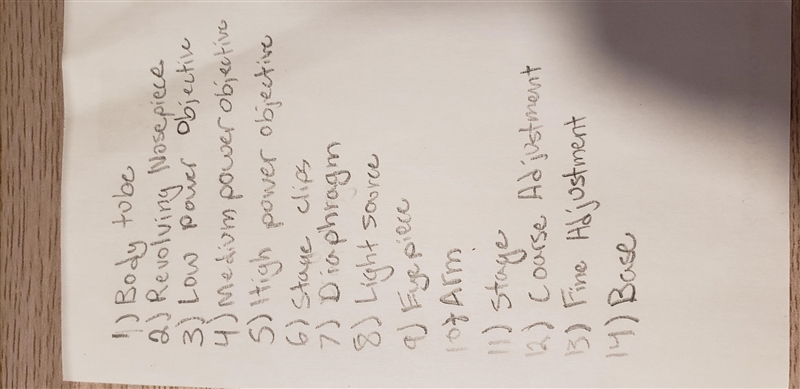 1) Body tube
2) Revolving Nosepiece
3) Low power objective
4) Medium power objective
5) High power objective
6) Stage clips
7) Diaphragm
8) Light source
9) Eyepiece
10) Arm
11) Stage
12) Coarse Adjustment
13) Fine Adjustment
14) Base